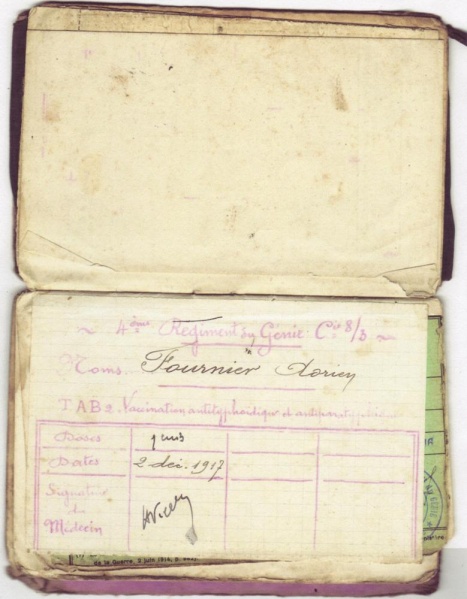 ~ 4ème Régiment du Génie Cie 8/3 ~
Noms. Fournier
T.A.B 2. Vaccination antityphoïdique et antiparatyphique
Doses
Dates 2 déc. 1917
Signature
du
Médecin
de la Guerre, 2 juin 1916, p.